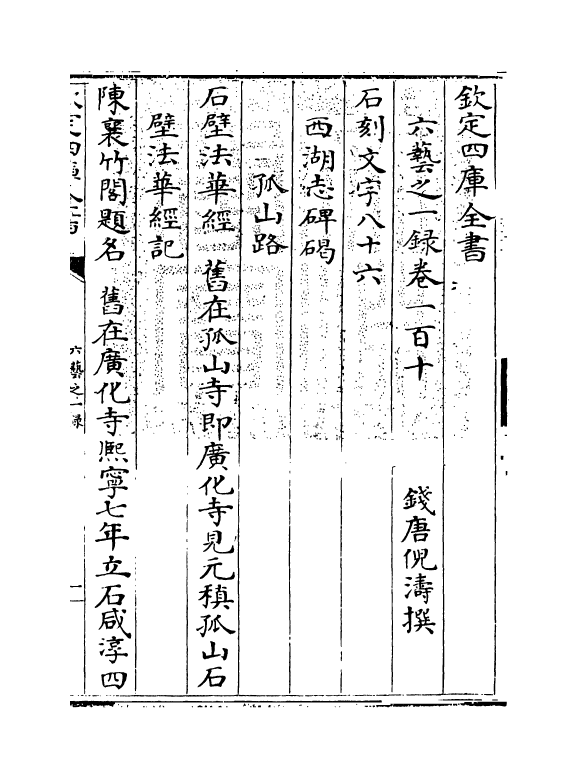 欽定四庫全書
六藝之一録卷一百十
錢唐倪濤撰
石刻文字八十六
西湖志碑碣
孤山路
石壁法華經　舊在孤山寺即廣化寺見元稹孤山石
壁法華經記
陳襄竹閣題名　舊在廣化寺熙寧七年立石咸淳四
六藝之一録
一